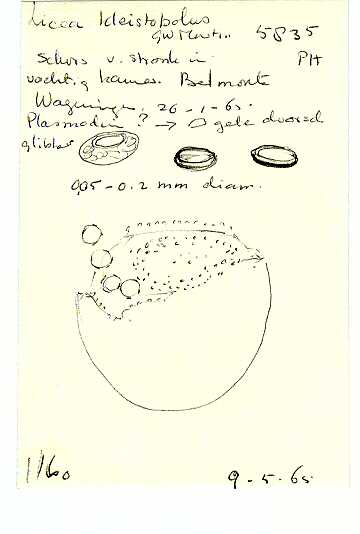 Licea kleistobolus
GW Martin 5835
Schors v. stronk in PH
vochtig kamer. Belmonte
Wageningen, 26-1-65.
Plasmodium? → gele dwarsch
0,05-0.2 mm diam.
1160
9-5-65